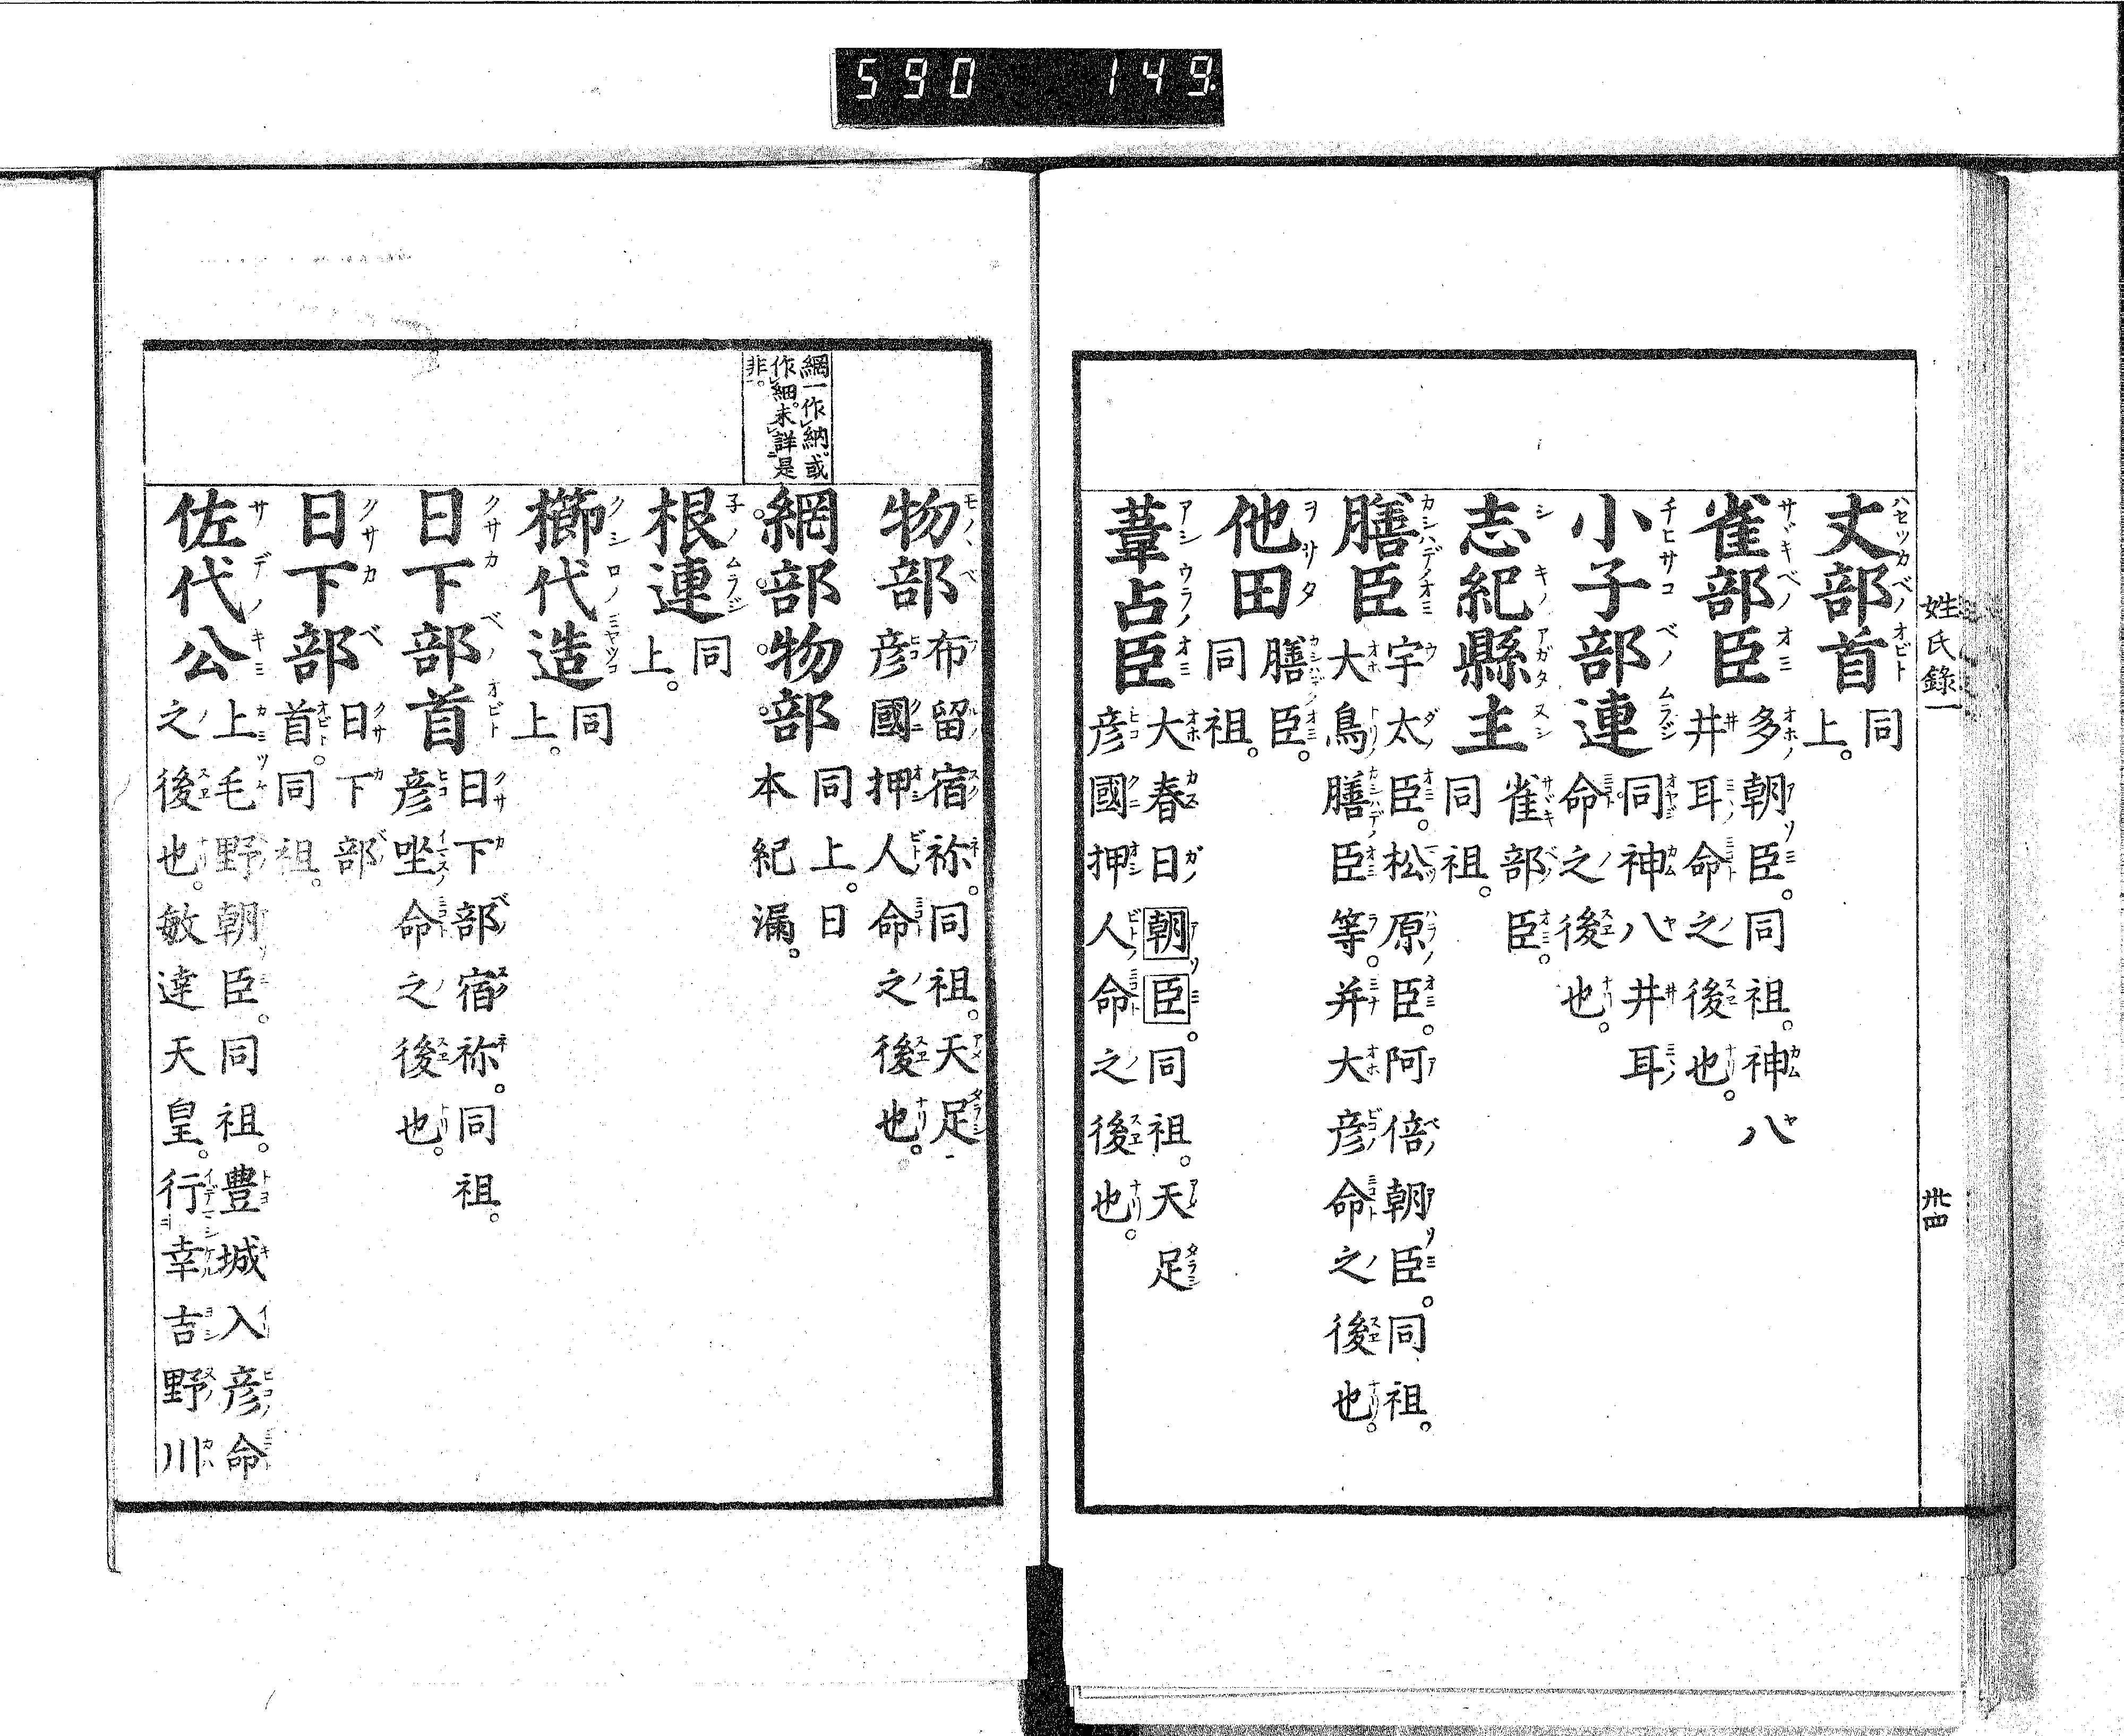 590 149
姓氏錄一
卅四
丈部首 同上。
雀部臣 多朝臣。同祖。神八
井耳命之後也。
小子部連 同神八井耳
命之後也。
志紀縣主 雀部臣。
同祖。
膳臣 宇太臣。松原臣。阿倍朝臣。同祖。
大鳥膳臣等。并大彦命之後也。
他田 膳臣。
同祖。
葦占臣 大春日朝臣。同祖。天足
彦國押人命之後也。
物部 布留宿祢。同祖。天足
彦國押人命之後也。
網一作納。或
作細。未詳是
非。
網部物部 同上。日
本紀漏。
根連 同上。
櫛代造 同上。
日下部首 日下部宿祢。同祖。
彦坐命之後也。
日下部 日下部
首。同祖。
佐代公 上毛野朝臣。同祖。豊城入彦命
之後也。敏達天皇。行幸吉野川